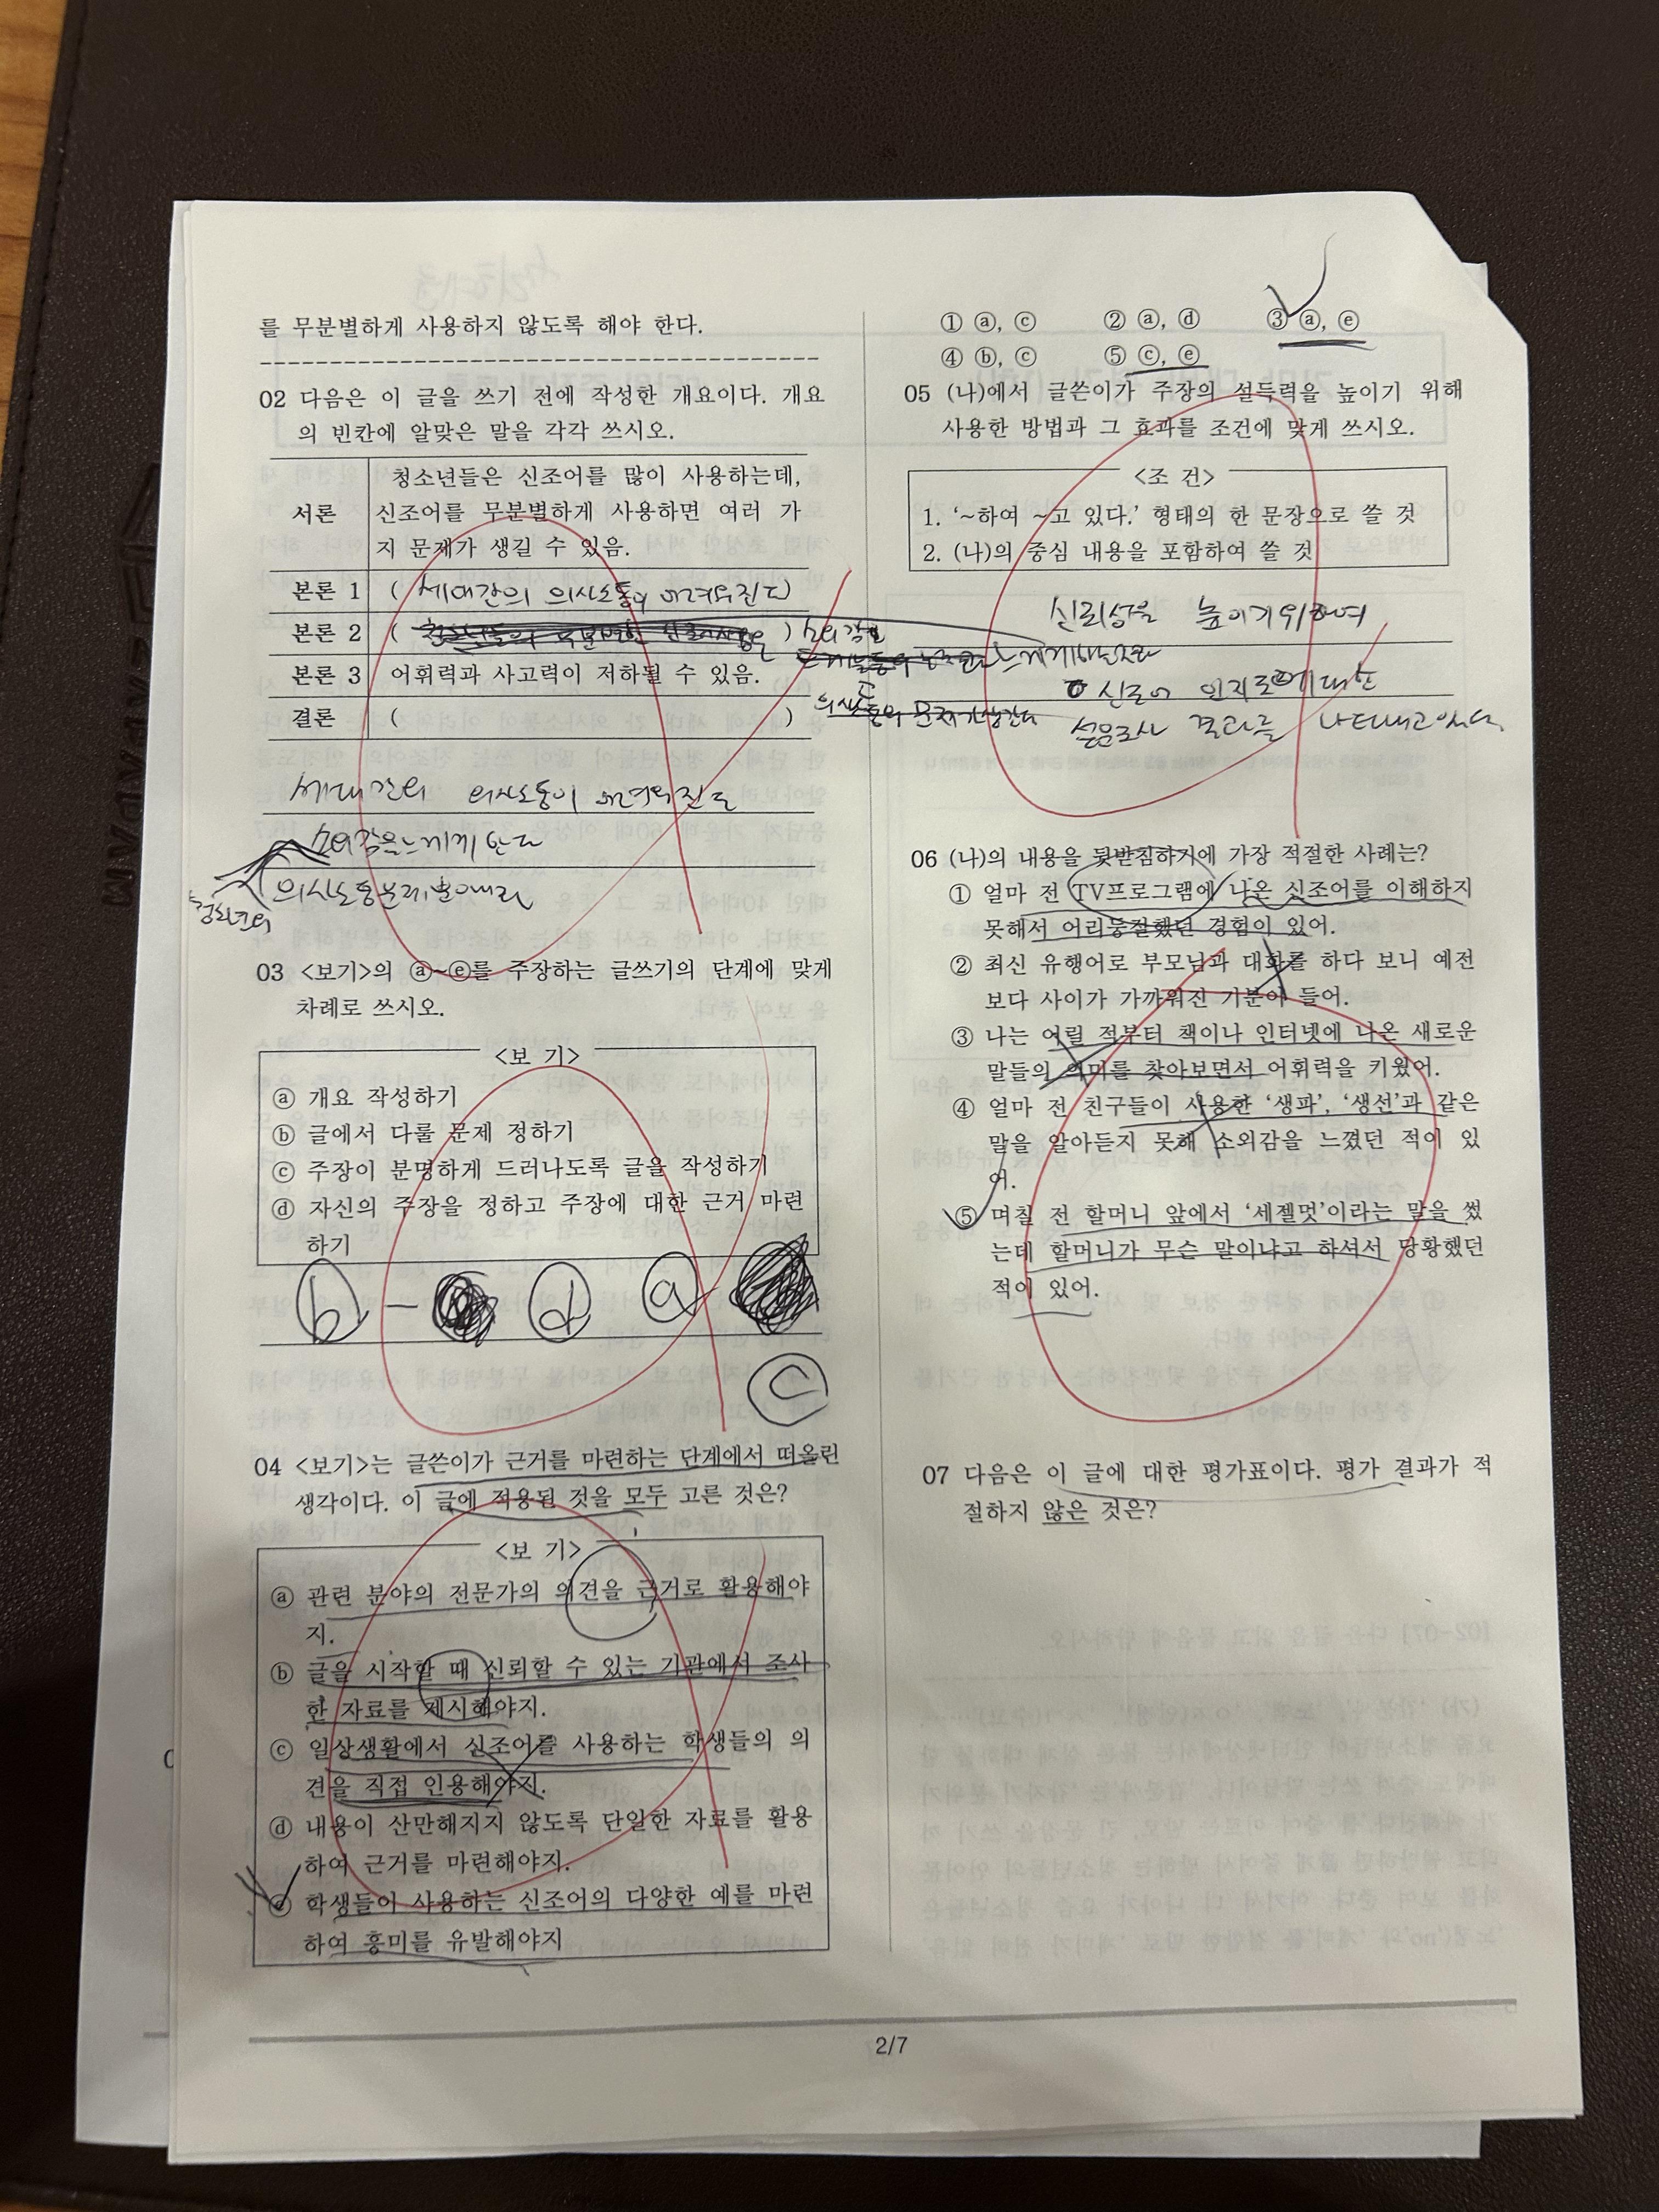 를 무분별하게 사용하지 않도록 해야 한다.
02 다음은 이 글을 쓰기 전에 작성한 개요이다. 개요
의 빈칸에 알맞은 말을 각각 쓰시오.
서론
청소년들은 신조어를 많이 사용하는데,
신조어를 무분별하게 사용하면 여러 가
지 문제가 생길 수 있음.
본론 1 ( 세대간의 의사소통이 어려워진다)
본론 2 ( ) 소외감을 느끼게한다
본론 3 어휘력과 사고력이 저하될 수 있음.
결론 ( )
세대간의 의사소통이 어려워진다
소외감을느끼게 한다
의사소통문제
03 <보기>의 ⓐ~ⓔ를 주장하는 글쓰기의 단계에 맞게
차례로 쓰시오.
<보 기>
ⓐ 개요 작성하기
ⓑ 글에서 다룰 문제 정하기
ⓒ 주장이 분명하게 드러나도록 글을 작성하기
ⓓ 자신의 주장을 정하고 주장에 대한 근거 마련
하기
ⓑ - ⓓ ⓐ -
ⓒ
04 <보기>는 글쓴이가 근거를 마련하는 단계에서 떠올린
생각이다. 이 글에 적용된 것을 모두 고른 것은?
<보 기>
ⓐ 관련 분야의 전문가의 의견을 근거로 활용해야
지.
ⓑ 글을 시작할 때 신뢰할 수 있는 기관에서 조사
한 자료를 제시해야지.
ⓒ 일상생활에서 신조어를 사용하는 학생들의 의
견을 직접 인용해야지.
ⓓ 내용이 산만해지지 않도록 단일한 자료를 활용
하여 근거를 마련해야지.
ⓔ 학생들이 사용하는 신조어의 다양한 예를 마련
하여 흥미를 유발해야지
① ⓐ, ⓒ ② ⓐ, ⓓ ③ ⓐ, ⓔ
④ ⓑ, ⓒ ⑤ ⓒ, ⓔ
05 (나)에서 글쓴이가 주장의 설득력을 높이기 위해
사용한 방법과 그 효과를 조건에 맞게 쓰시오.
<조 건>
1. ‘~하여 ~고 있다.’ 형태의 한 문장으로 쓸 것
2. (나)의 중심 내용을 포함하여 쓸 것
신뢰성을 높이기위하여
신조어 인지도에대한
설문조사 결과를 나타내고있다.
06 (나)의 내용을 뒷받침하기에 가장 적절한 사례는?
① 얼마 전 TV프로그램에 나온 신조어를 이해하지
못해서 어리둥절했던 경험이 있어.
② 최신 유행어로 부모님과 대화를 하다 보니 예전
보다 사이가 가까워진 기분이 들어.
③ 나는 어릴 적부터 책이나 인터넷에 나온 새로운
말들의 의미를 찾아보면서 어휘력을 키웠어.
④ 얼마 전 친구들이 사용한 ‘생파’, ‘생선’과 같은
말을 알아듣지 못해 소외감을 느꼈던 적이 있
어.
⑤ 며칠 전 할머니 앞에서 ‘세젤멋’이라는 말을 썼
는데 할머니가 무슨 말이냐고 하셔서 당황했던
적이 있어.
07 다음은 이 글에 대한 평가표이다. 평가 결과가 적
절하지 않은 것은?
2/7